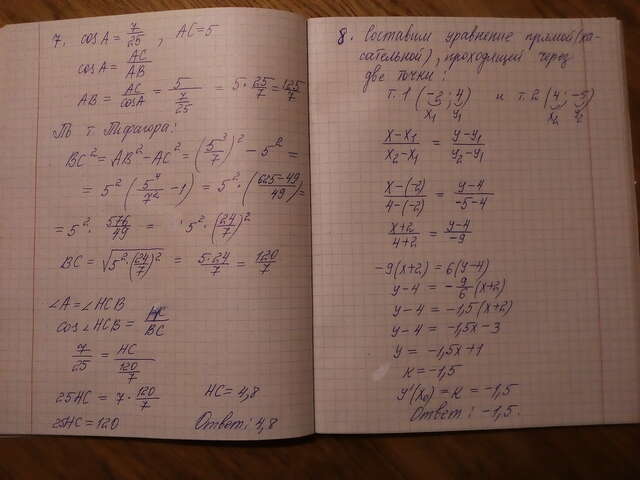 7. cosA = 7/25, AC=5
cosA = AC/AB
AB = AC/cosA = 5/(7/25) = 5·25/7 = 125/7
По т. Пифагора:
BC² = AB² - AC² = (5³/7)² - 5² =
= 5²(5⁴/7² - 1) = 5²·(625-49/49) =
= 5²·576/49 = 5²·(24/7)²
BC = √5²·(24/7)² = 5·24/7 = 120/7
∠A = ∠HCB
cos∠HCB = HC/BC
7/25 = HC/(120/7)
25HC = 7·120/7 HC = 4,8
25HC = 120 Ответ: 4,8
8. Составим уравнение прямой (ка-
сательной), проходящий через
две точки:
т.1 (-2; 4) и т.2 (4; -5)
x₁ y₁ x₂ y₂
x-x₁/x₂-x₁ = y-y₁/y₂-y₁
x-(-2)/4-(-2) = y-4/-5-4
x+2/4+2 = y-4/-9
-9(x+2) = 6(y-4)
y-4 = -9/6(x+2)
y-4 = -1,5(x+2)
y-4 = -1,5x-3
y = -1,5x+1
к = -1,5
y'(x₀) = к = -1,5
Ответ: -1,5.